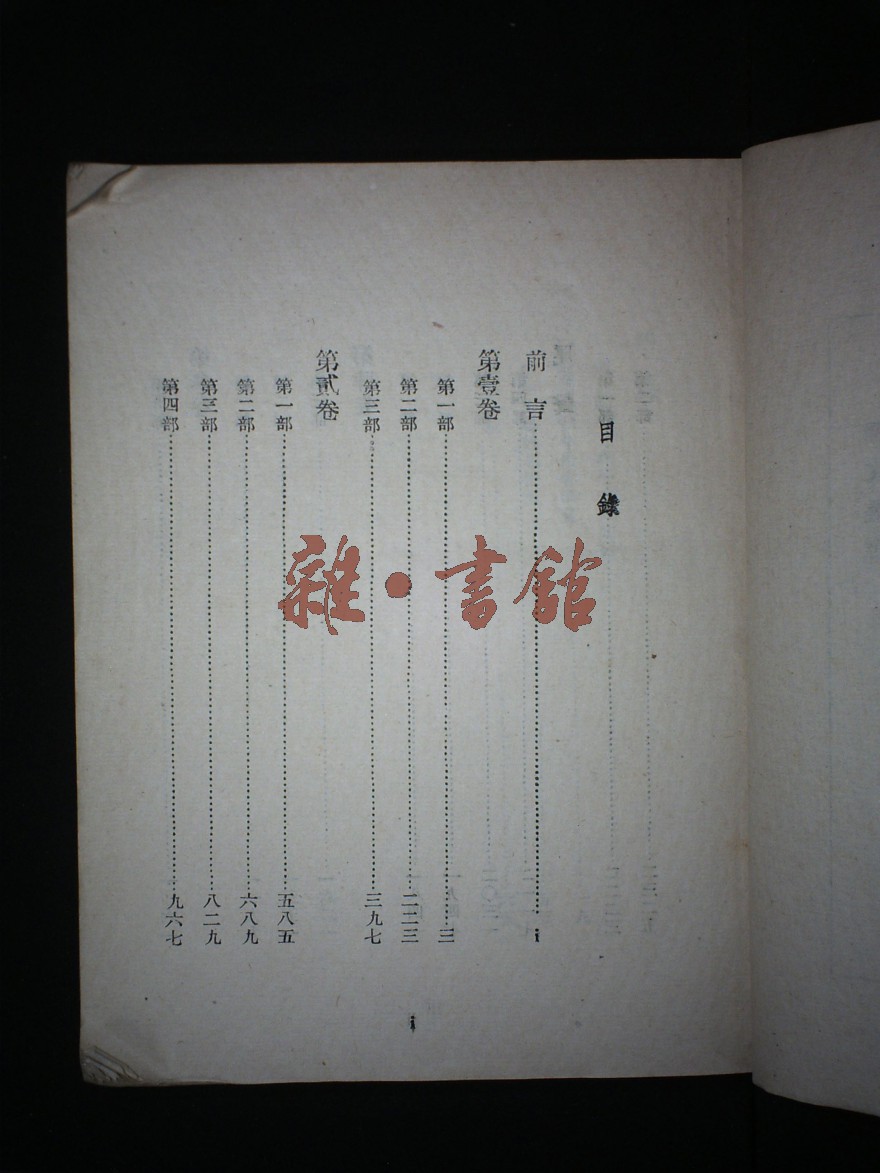 目錄
前言……i
第壹卷
第一部……三
第二部……二二三
第三部……三九七
第貳卷
第一部……五八五
第二部……六八九
第三部……八二九
第四部……九六七
i
雜·書館